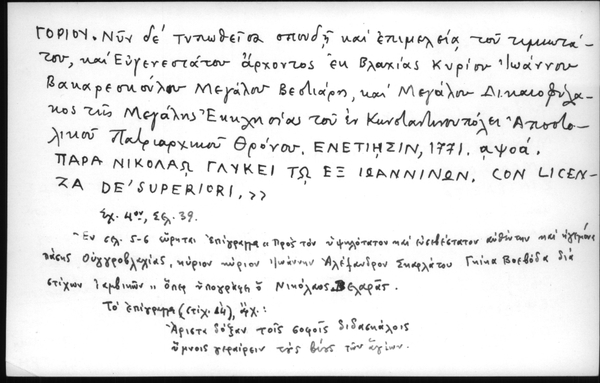 ΓΟΡΙΟΥ. Νῦν δέ τυπωθεῖσα σπουδῇ καί ἐπιμελείᾳ τοῦ τιμιωτά-
του, καί Εὐγενεστάτου ἄρχοντος ἐκ Βλαχίας Κυρίου Ἰωάννου
Βακαρεσκούλου Μεγάλου Βεστιάρη, καί Μεγάλου Δικαιοφύλα-
κος τῆς Μεγάλης Ἐκκλησίας τοῦ ἐν Κωνσταντινουπόλει Ἀποστο-
λικοῦ Πατριαρχικοῦ Θρόνου. ΕΝΕΤΙῌΣΙΝ, 1771. αψοά.
ΠΑΡΑ ΝΙΚΟΛΑῼ ΓΛΥΚΕΙ Τῼ ΕΞ ΙΩΑΝΝΙΝΩΝ. CON LICEN-
ZA DE' SUPERIORI, >>
Σχ. 4ον, Σελ. 39.
Ἐν σελ. 5-6 εὕρηται ἐπίγραμμα "Πρός τόν ὑψηλότατον καί εὐσεβέστατον αὐθέντην καί ἡγεμόνα
πάσης Οὑγγροβλαχίας, κύριον κύριον Ἰωάννην Ἀλέξανδρον Σκαρλάτου Γκίκα Βοεβόδα διά
στίχων ἰαμβικῶν" ὅπερ ὑπογράφει ὁ Νικόλαος Βελαρᾶς.
Τό ἐπίγραμμα (στίχ. 44), ἄρχ.:
Ἄριστα δόξαν τοῖς σοφοῖς διδασκάλοις
ὕμνοις γεραίρειν τούς βίους τῶν ἁγίων.